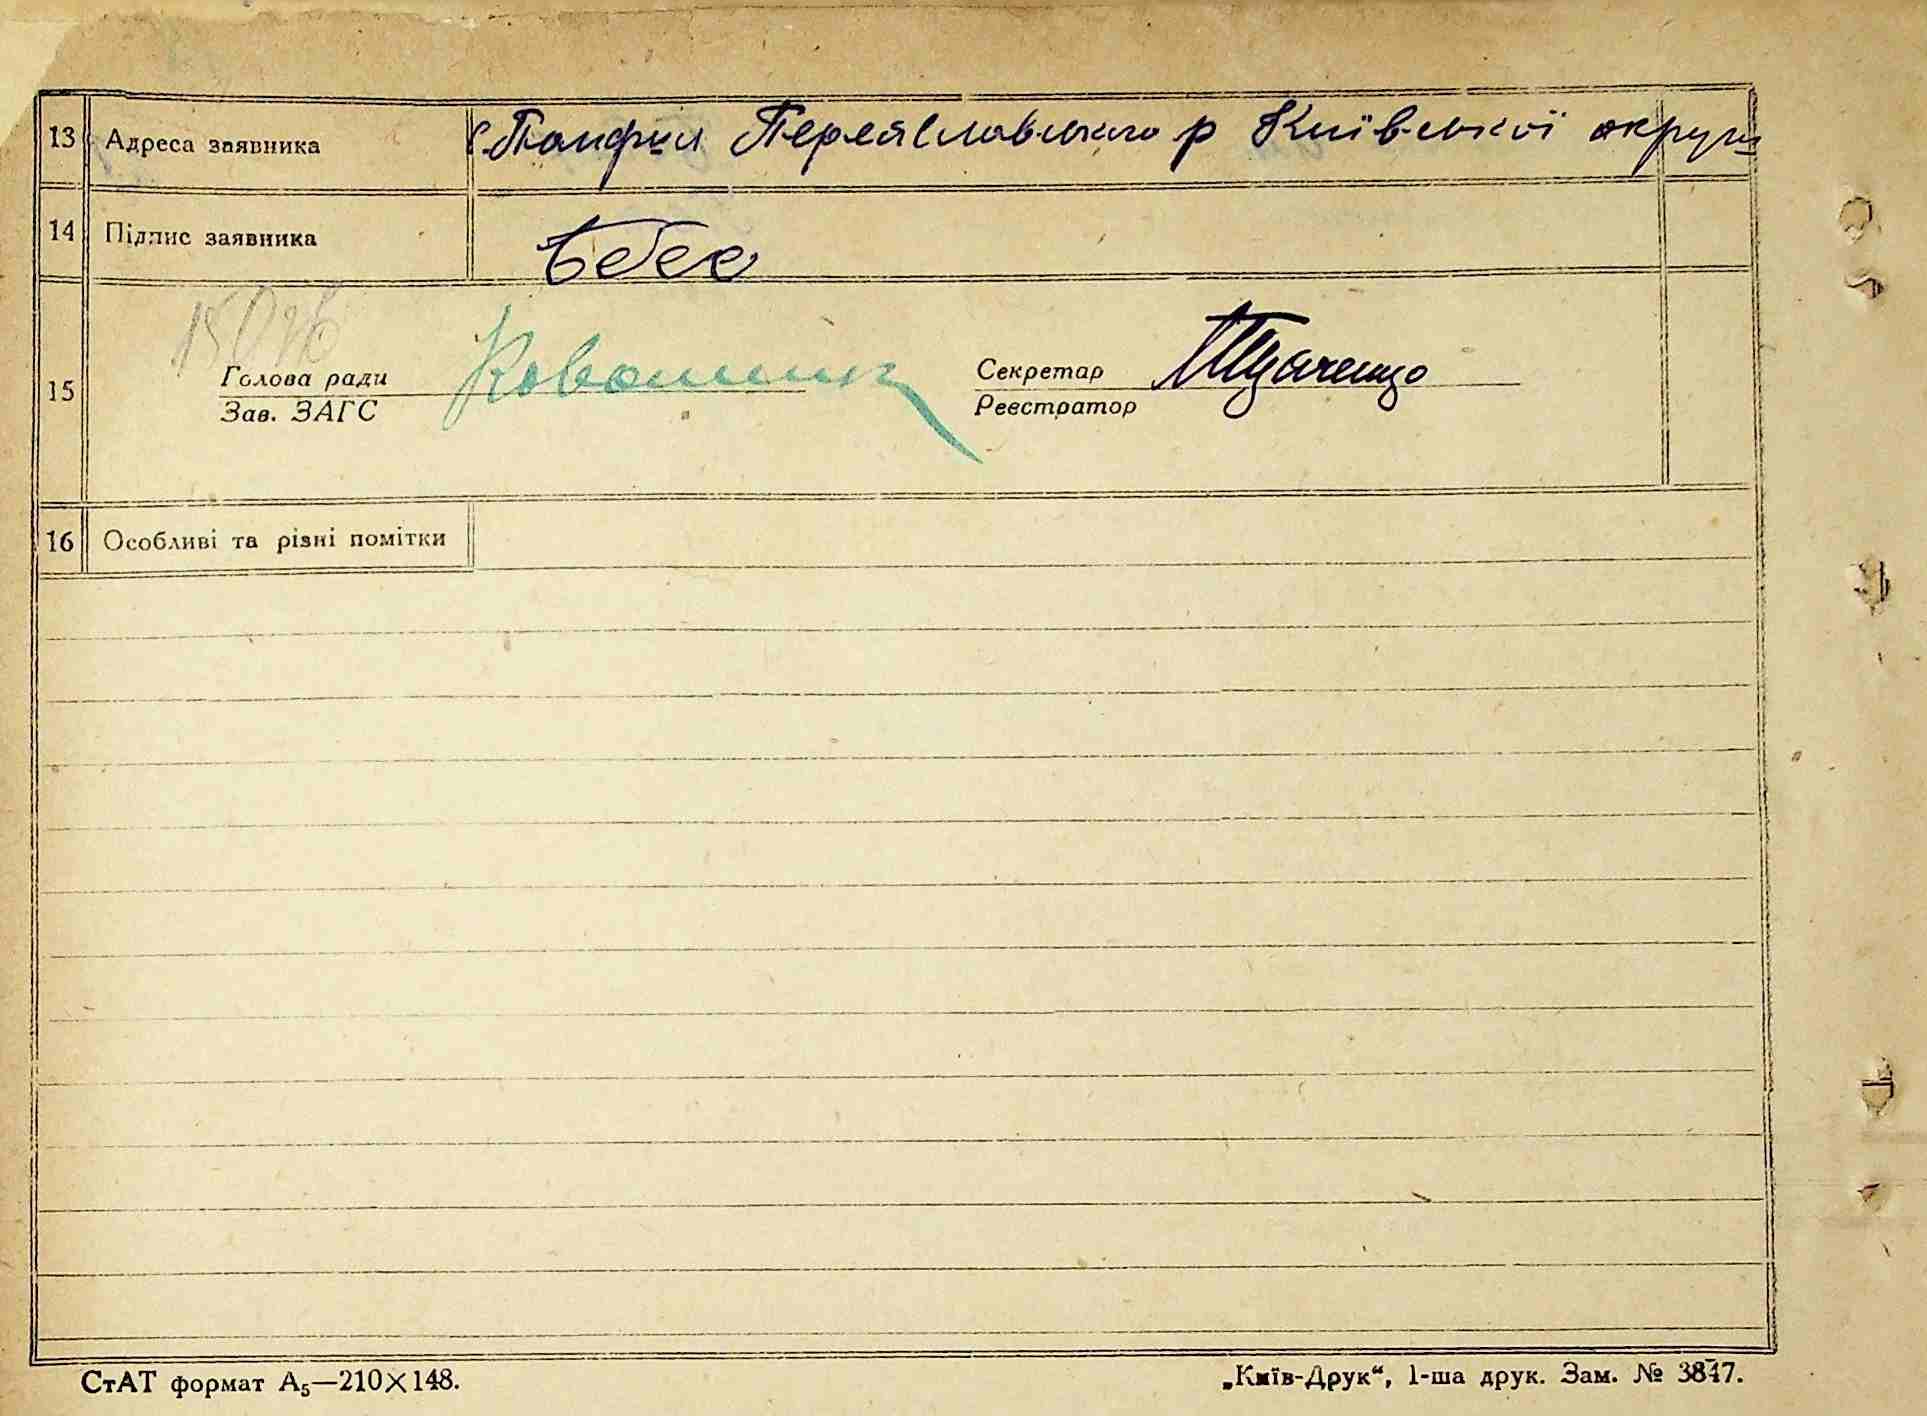 13 Адреса заявника с. Панфил Переяславського р Київської округи
14 Підпис заявника
15
Голова ради Секретар
Зав. ЗАГС Реєстратор
16 Особливі та різні помітки
СтАТ формат А₅—210×148. „Київ-Друк“, 1-ша друк. Зам. № 3847.